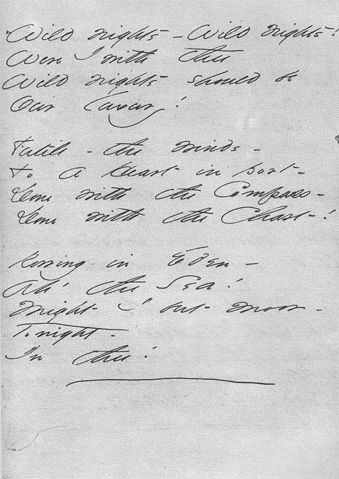 Wild nights - Wild nights!
Were I with thee
Wild nights should be
Our luxury!
Futile - the winds -
To a Heart in port -
Done with the Compass -
Done with the Chart -!
Rowing in Eden -
Ah! the Sea!
Might I but moor -
Tonight -
In thee!